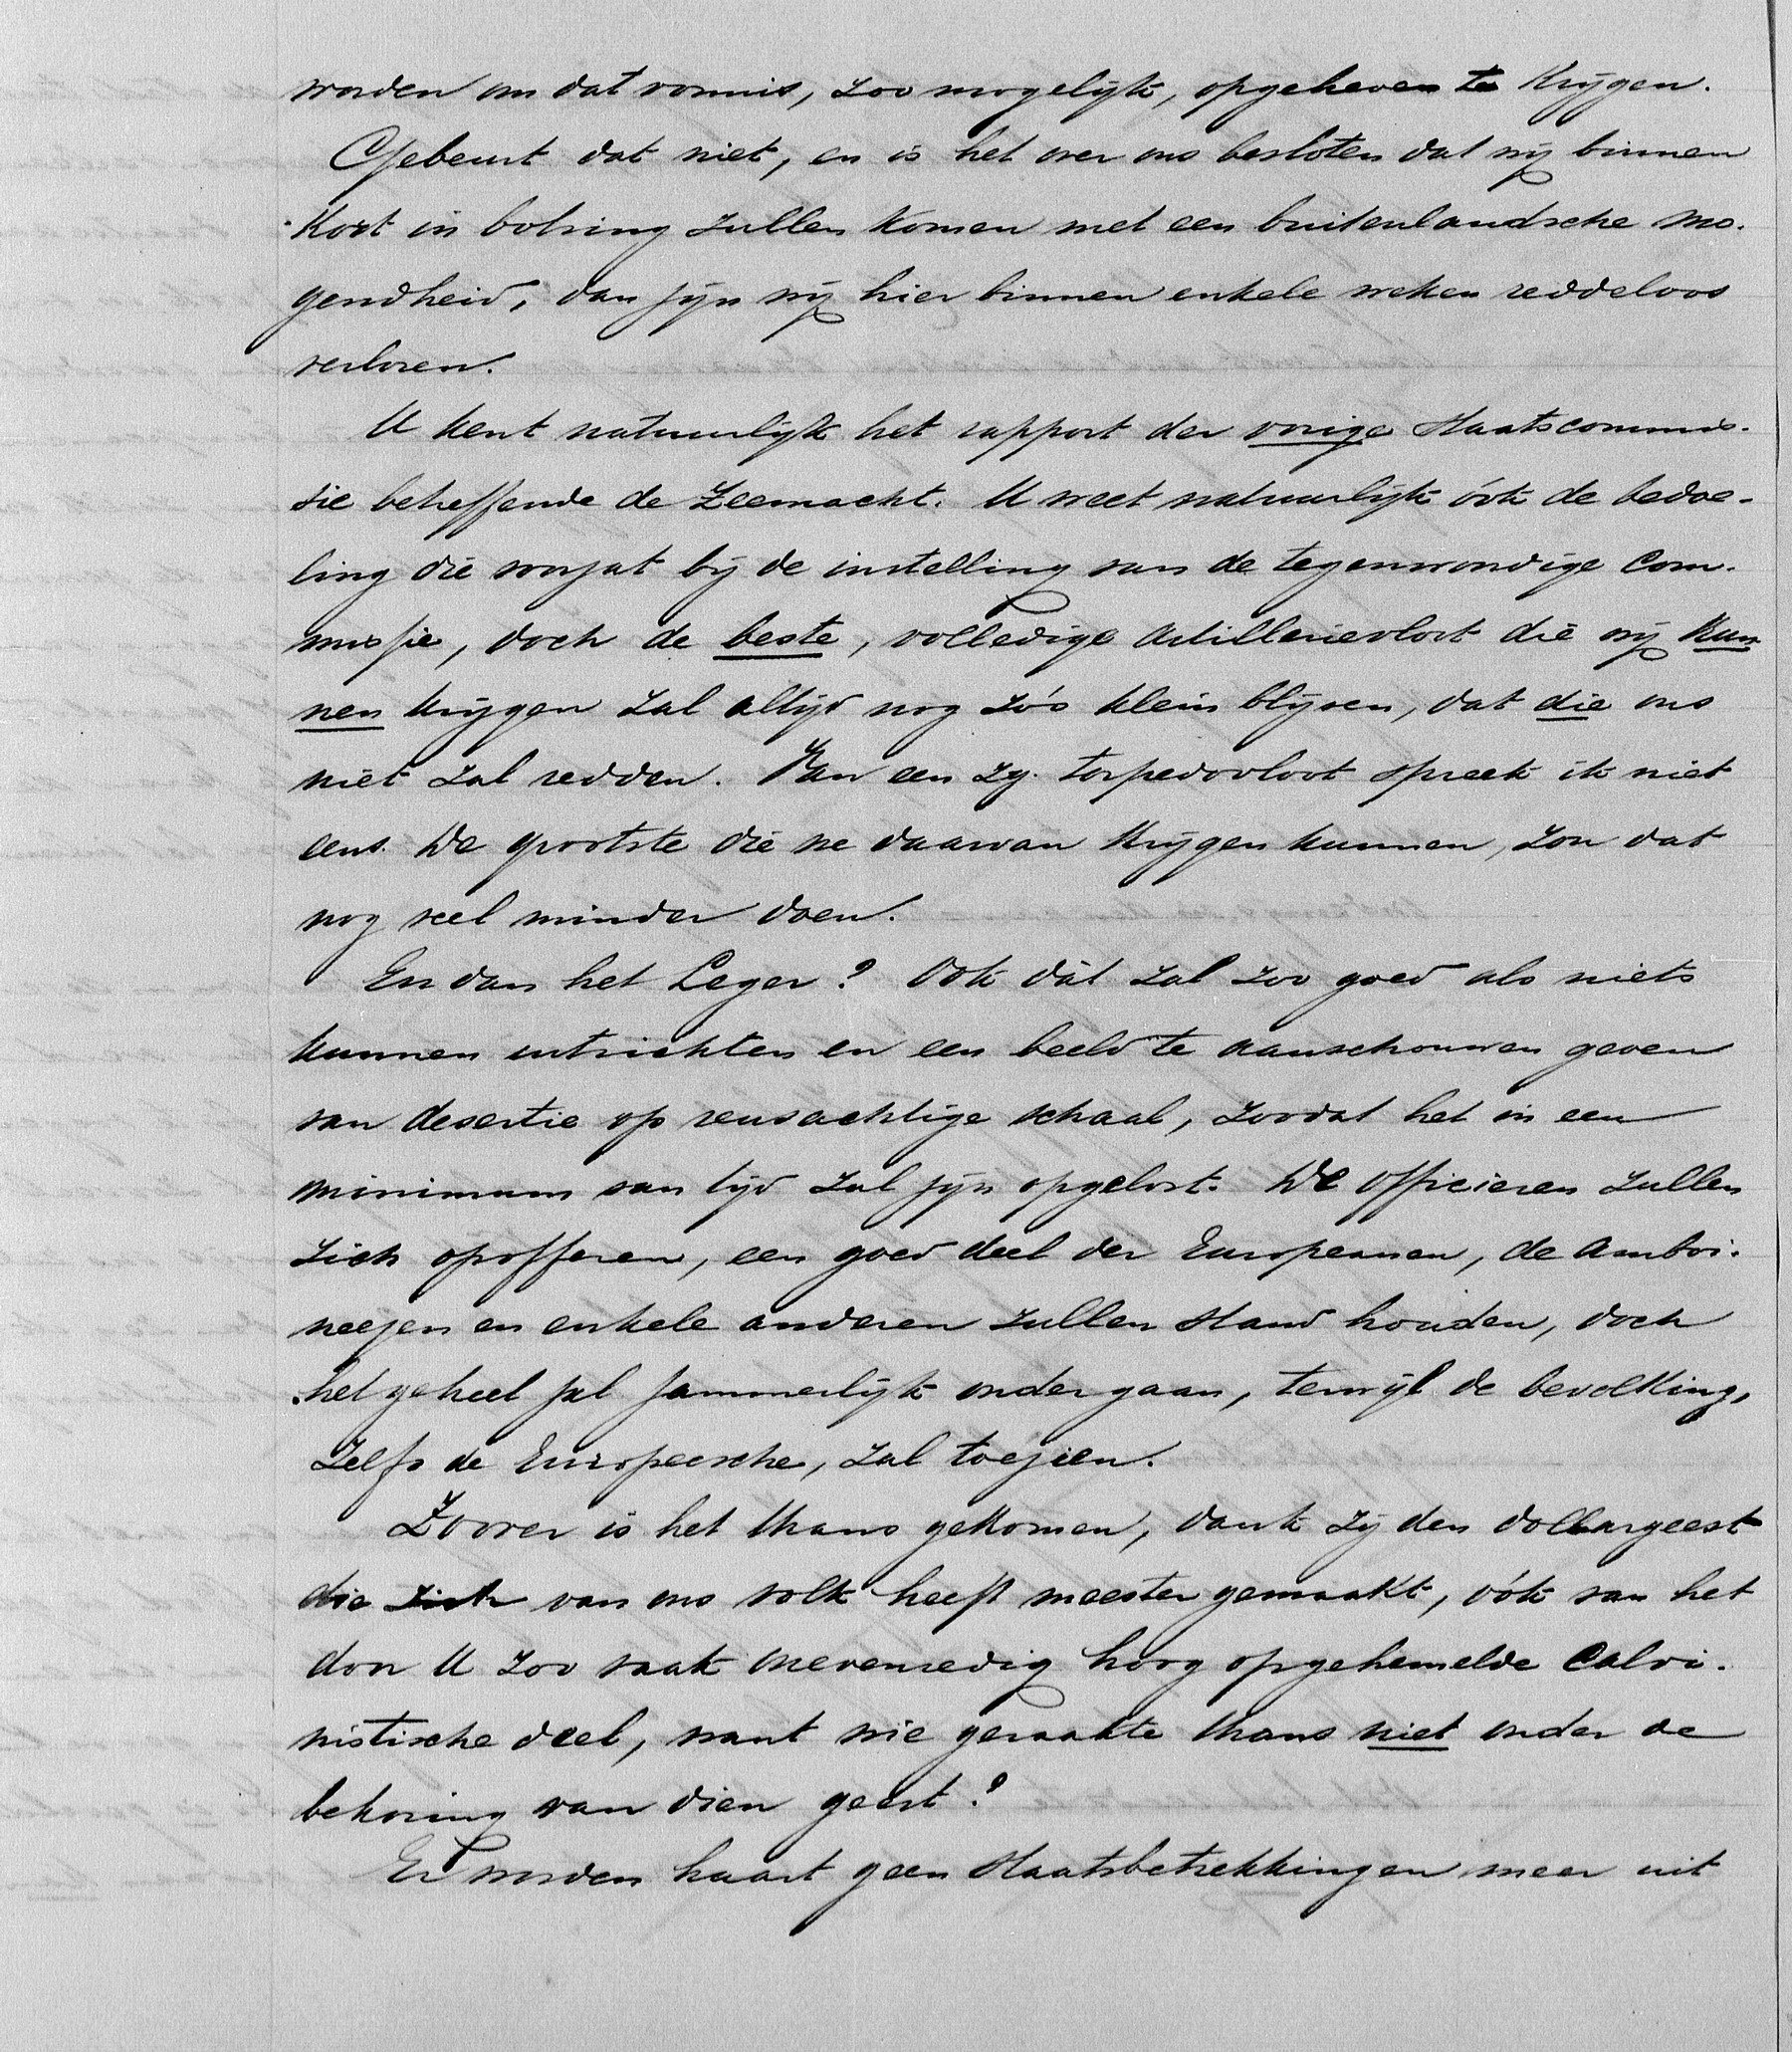 worden om dat vonnis, zoo mogelijk, opgeheven te krijgen.
Gebeurt dat niet, en is het over ons besloten dat wij binnen
kort in botsing zullen komen met een buitenlandsche mo-
gendheid, dan zijn wij hier binnen enkele weken reddeloos
verloren.
U kent natuurlijk het rapport der vorige Staatscommis-
sie betreffende de Zeemacht. U weet natuurlijk óók de bedoe-
ling die voorzat bij de instelling van de tegenwoordige Com-
missie, doch de beste, volledige artillerievloot die wij kun-
nen krijgen zal altijd nog zóo klein blijven, dat die ons
niet zal redden. Van een zg. torpedovloot spreek ik niet
eens. De grootste die we daarvan krijgen kunnen, zou dat
nog veel minder doen.
En dan het Leger? Ook dàt zal zoo goed als niets
kunnen uitrichten en een beeld te aanschouwen geven
van desertie op reusachtige schaal, zoodat het in een
minimum van tijd zal zijn opgelost. De officieren zullen
zich opofferen, een goed deel der Europeanen, de Amboi-
neezen en enkele anderen zullen stand houden, doch
het geheel zal jammerlijk onder gaan, terwijl de bevolking,
zelfs de Europeesche, zal toezien.
Zoover is het thans gekomen, dank zij den dollargeest
die zich van ons volk heeft meester gemaakt, óók van het
door U zoo vaak onevenredig hoog opgehemelde Calvi-
nistische deel, want wie geraakte thans niet onder de
bekoring van dien geest?
Er worden haast geen Staatsbetrekkingen meer uit